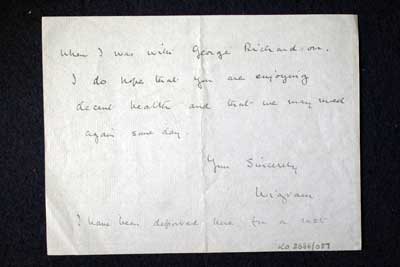 when I was with George Richardson.
I do hope that you are enjoying
decent health and that we may meet
again some day.
Yours Sincerely
Wigram
I have been deported here for a rest